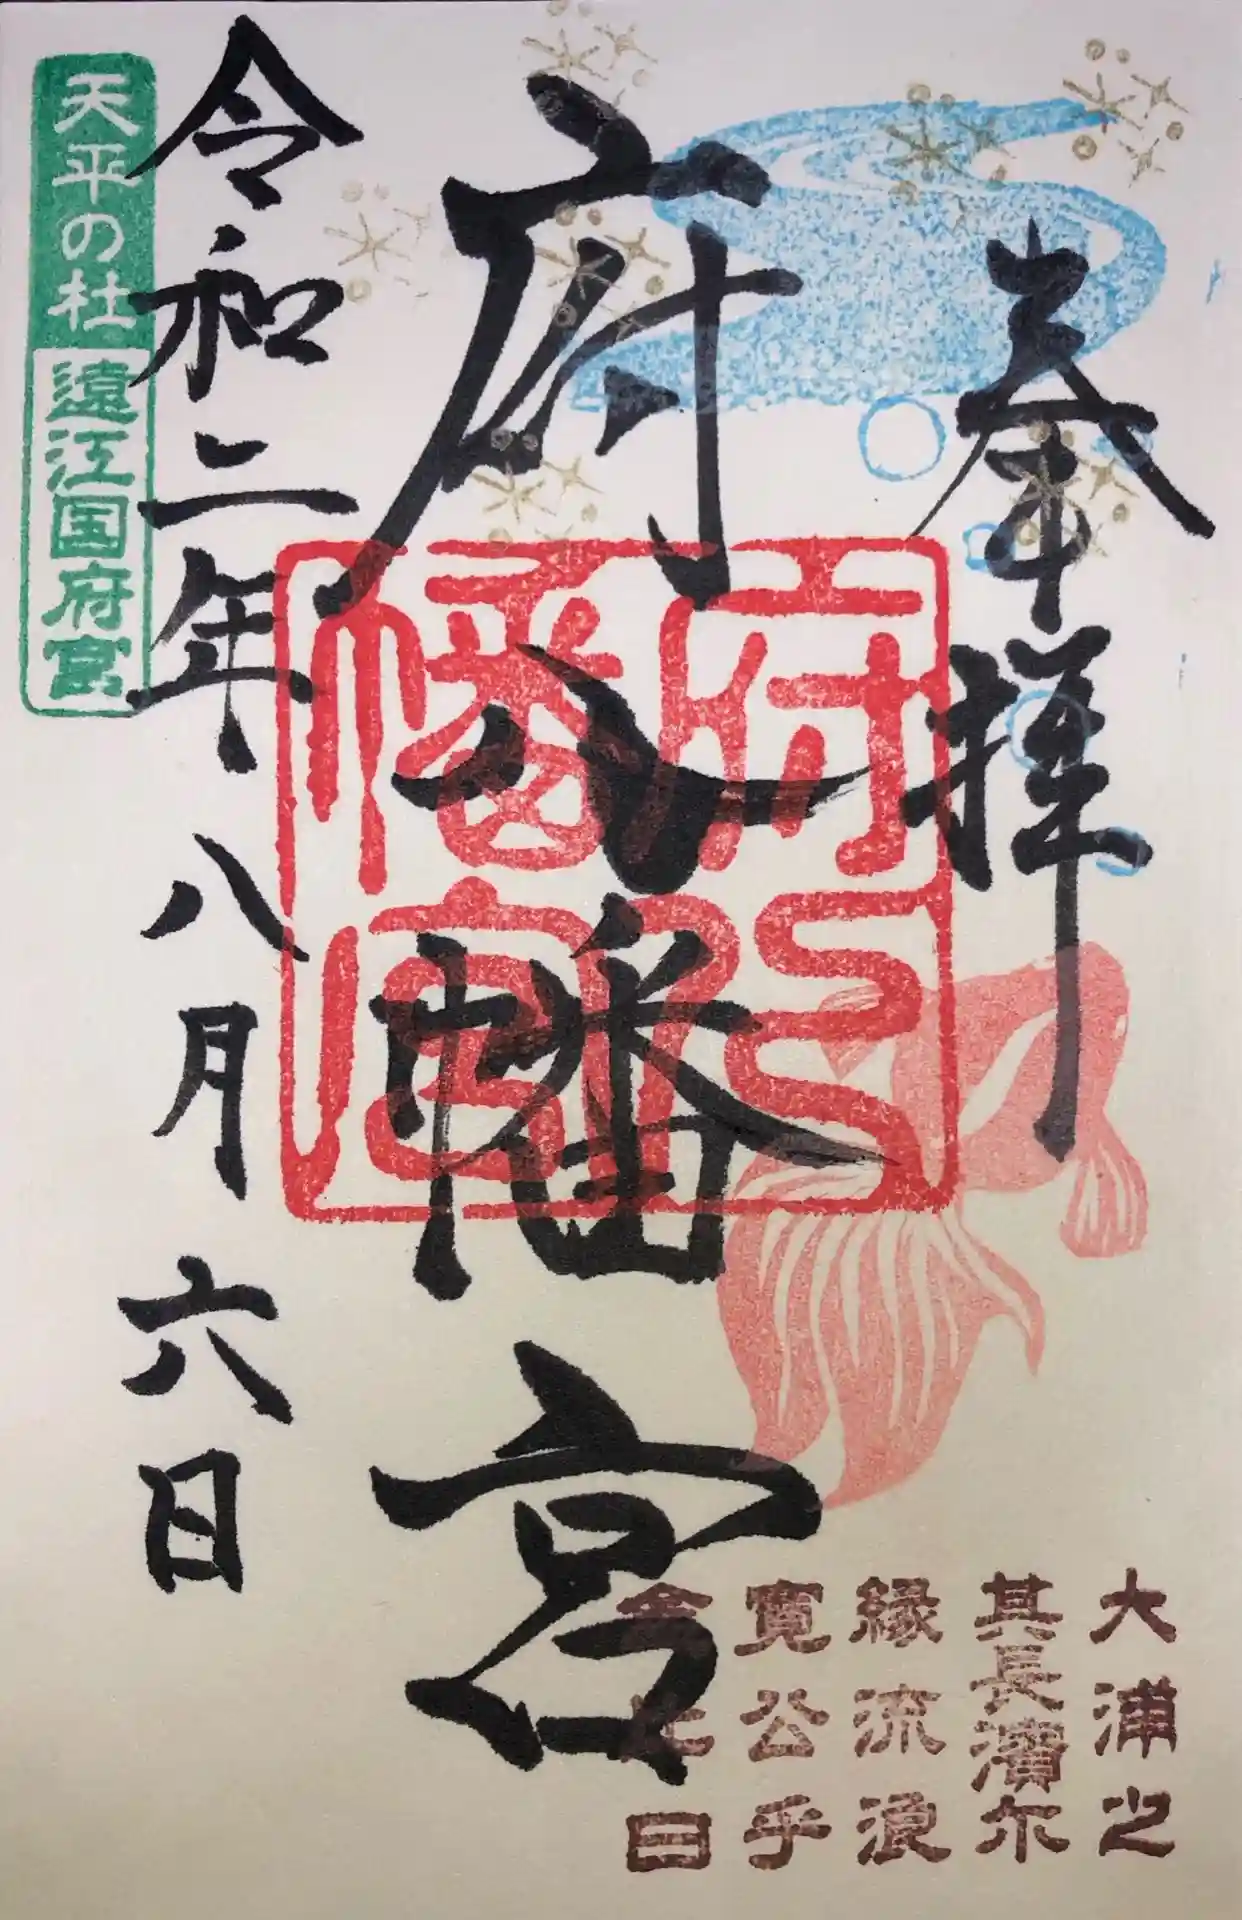 奉拝
府八幡宮
府八幡宮
令和二年八月六日
天平の杜 遠江国府宮
大浦之
其長濱尓
縁流浪
寛公乎
念比日